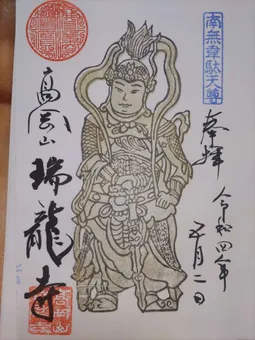 南無韋駄天尊
奉拝
令和四年
五月二日
高岡山
瑞龍寺